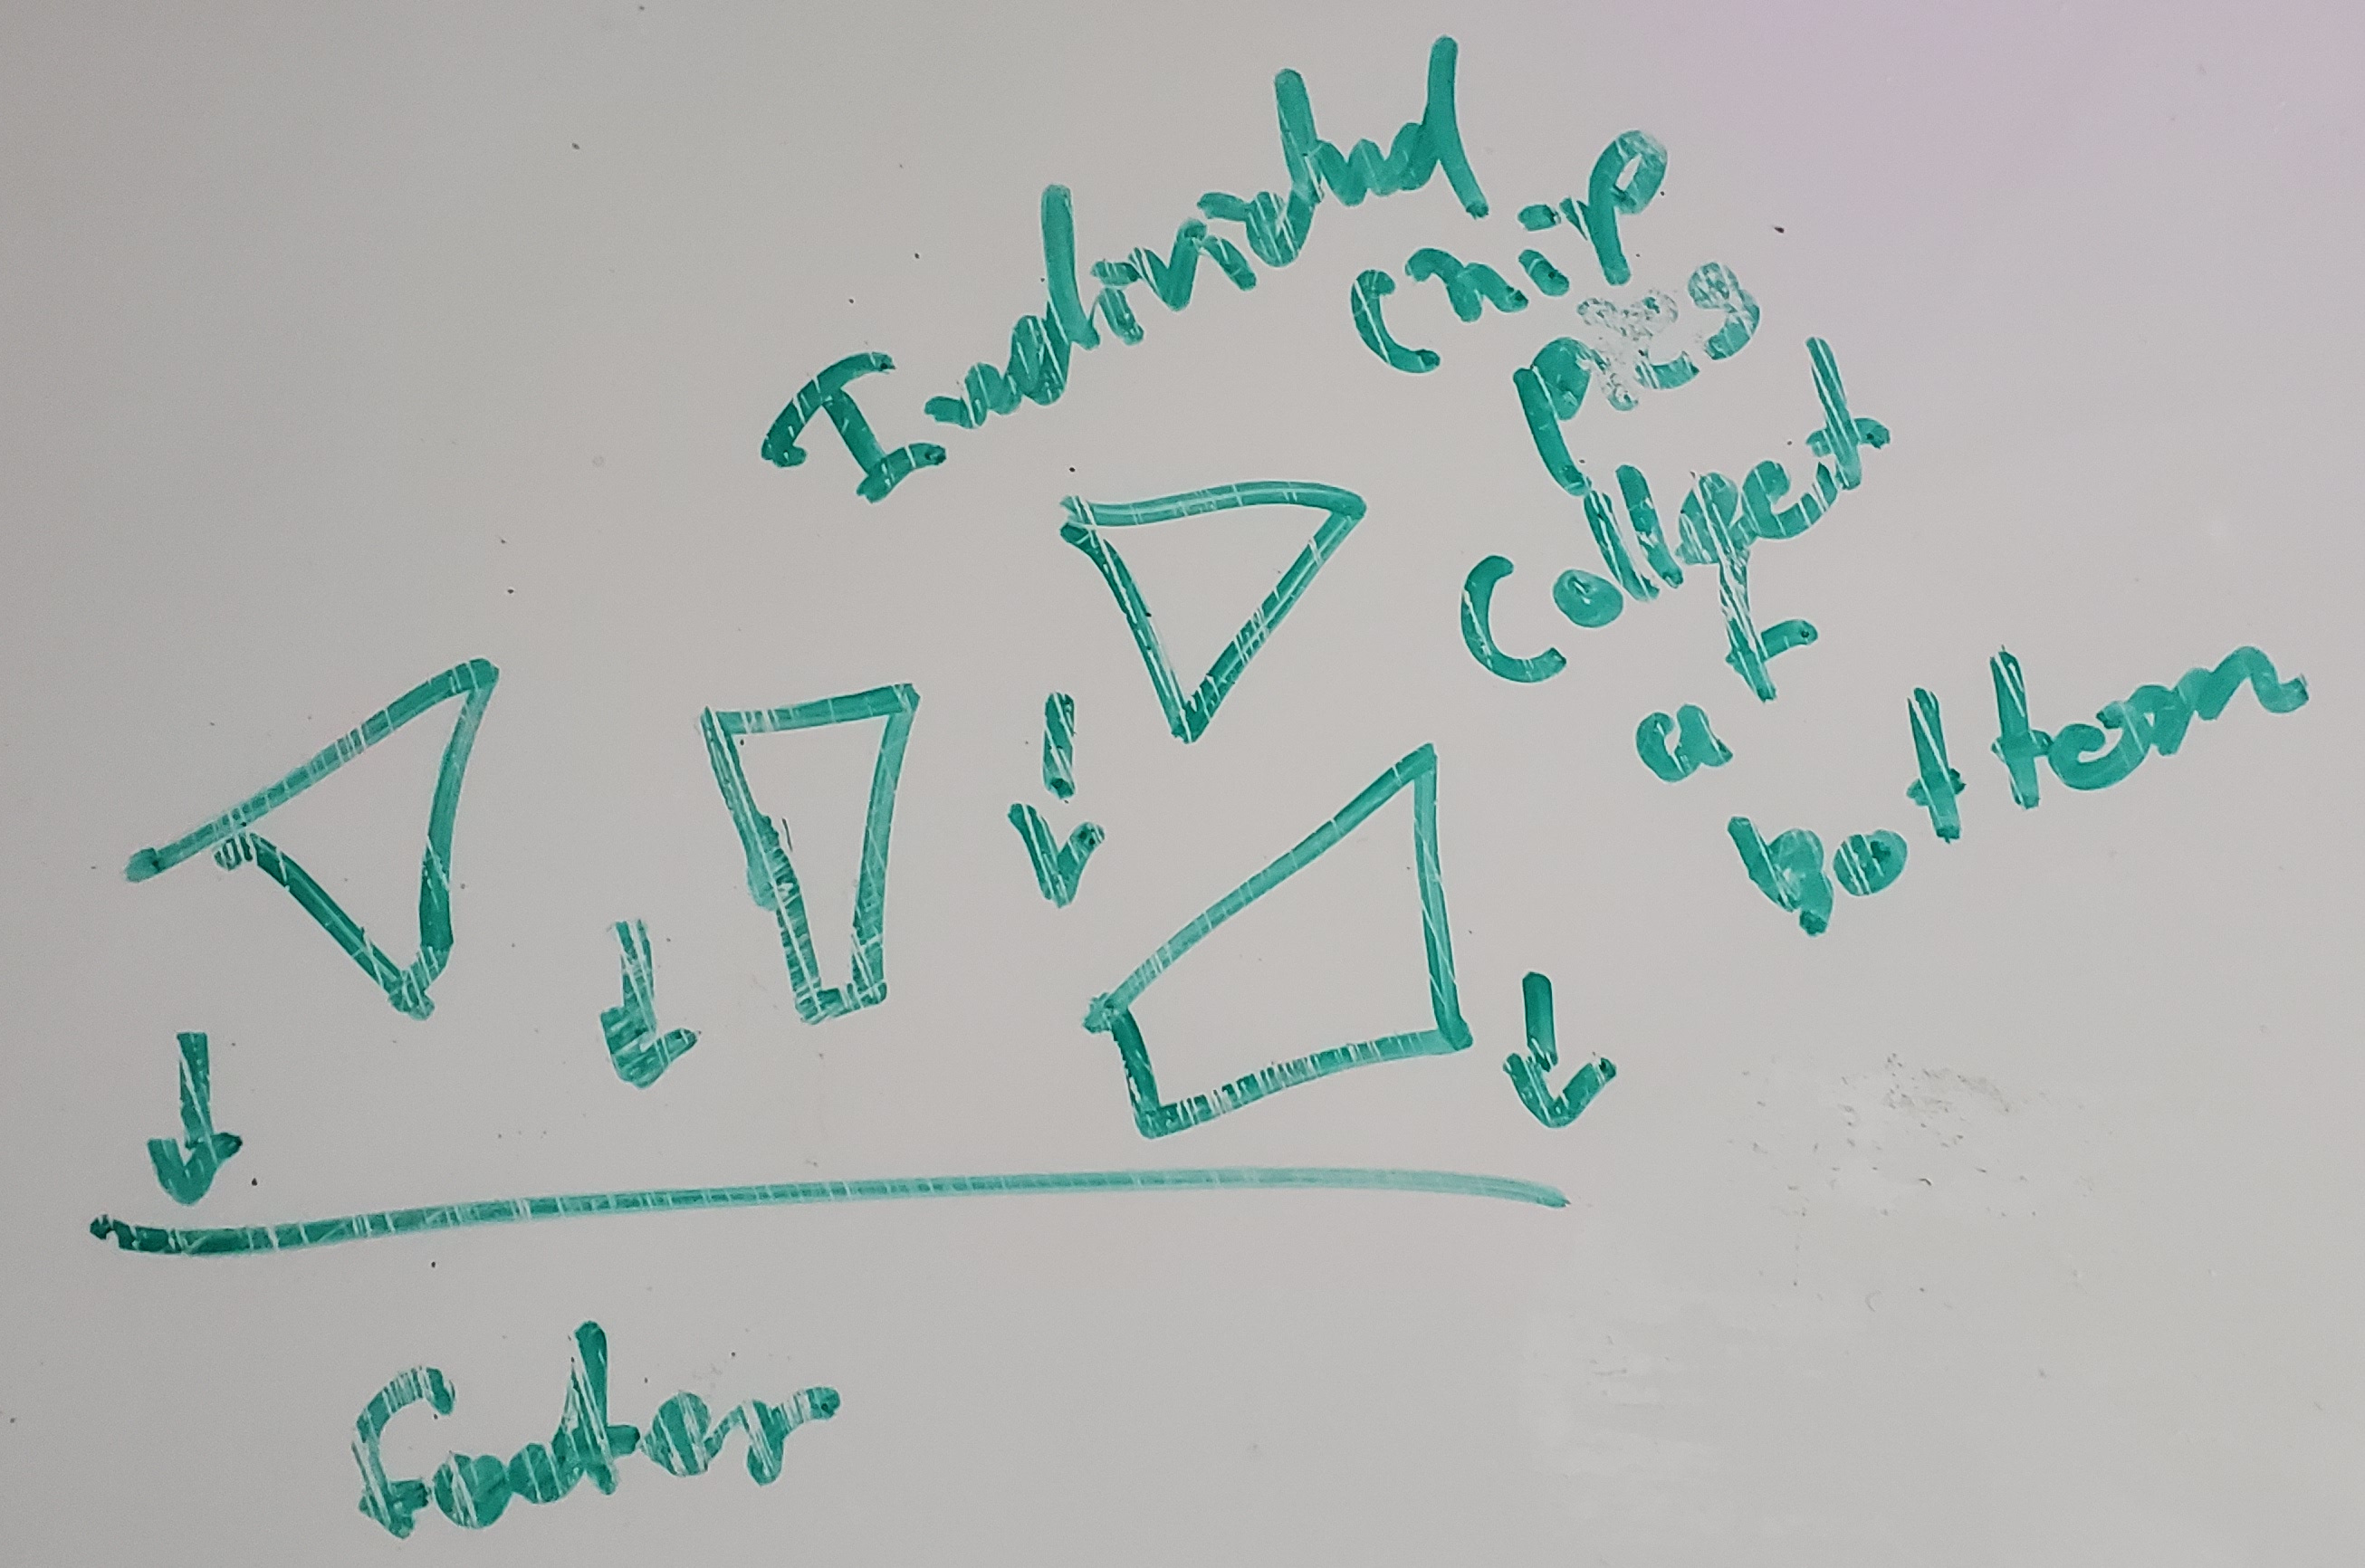 Individual
chip
pcs
Collect
at
bottom
footer